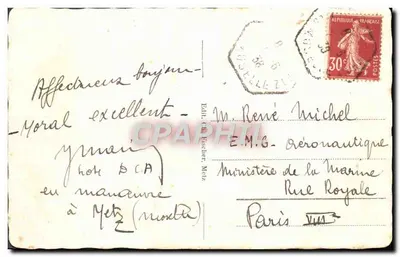 Affectueux bonjour
- Moral excellent -
DCA
en manœuvre
à Metz (moselle)
Edit. Ch. Rocher, Metz
REPUBLIQUE FRANÇAISE
30c
POSTES
M. René Michel
E.M.G. Aéronautique
Ministère de la Marine
Rue Royale
Paris VIII
CPARAMA